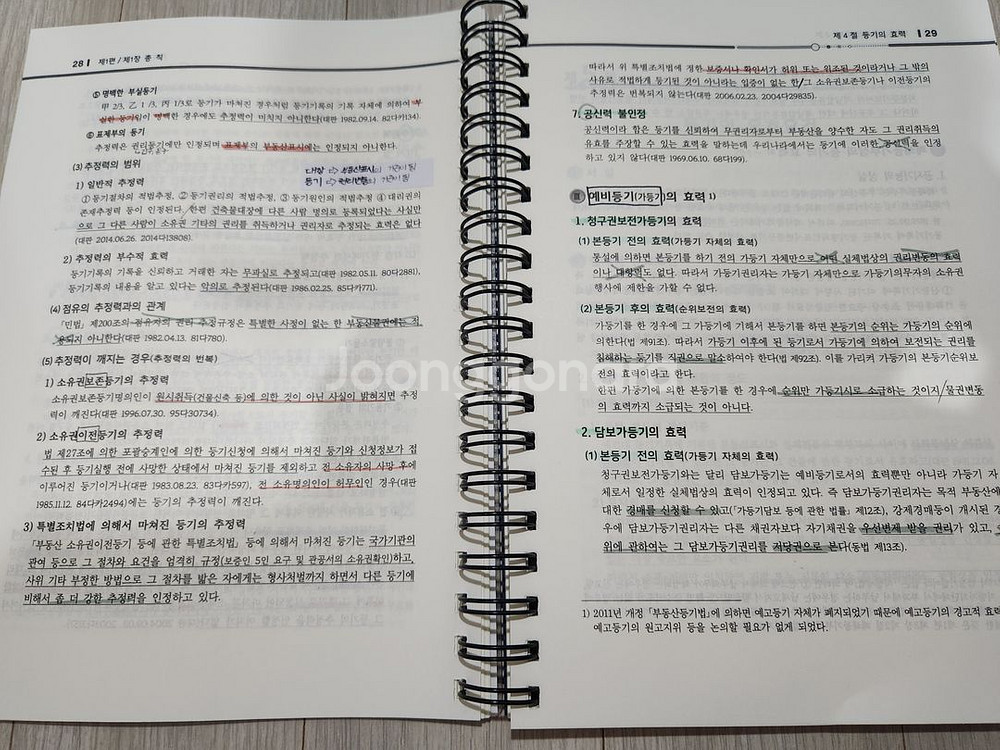 28 | 제1편 / 제1장 총 칙
⑤ 명백한 부실등기
甲 2/3, 乙 1/3, 丙 1/3로 등기가 마쳐진 경우처럼 등기기록의 기록 자체에 의하여 부
실한 등기임이 명백한 경우에도 추정력이 미치지 아니한다(대판 1982.09.14. 82다카134).
⑥ 표제부의 등기
추정력은 권리등기에만 인정되며 표제부의 부동산표시에는 인정되지 아니한다.
(3) 추정력의 범위
대장 ⇨ 부동산표시
등기 ⇨ 권리변동
1) 일반적 추정력
① 등기절차의 적법추정, ② 등기권리의 적법추정, ③ 등기원인의 적법추정 ④ 대리권의
존재추정력 등이 인정된다. 한편 건축물대장에 다른 사람 명의로 등록되었다는 사실만
으로 그 다른 사람이 소유권 기타의 권리를 취득하거나 권리자로 추정되는 효력은 없다
(대판 2014.06.26. 2014다13808).
2) 추정력의 부수적 효력
등기기록의 기록을 신뢰하고 거래한 자는 무과실로 추정되고(대판 1982.05.11. 80다2881),
등기기록의 내용을 알고 있다는 악의로 추정된다(대판 1986.02.25. 85다카771).
(4) 점유의 추정력과의 관계
「민법」 제200조의 점유자의 권리 추정규정은 특별한 사정이 없는 한 부동산물권에는 적
용되지 아니한다(대판 1982.04.13. 81다780).
(5) 추정력이 깨지는 경우(추정력의 번복)
1) 소유권보존등기의 추정력
소유권보존등기명의인이 원시취득(건물신축 등)에 의한 것이 아닌 사실이 밝혀지면 추정
력이 깨진다(대판 1996.07.30. 95다30734).
2) 소유권이전등기의 추정력
법 제27조에 의한 포괄승계인에 의한 등기신청에 의해서 마쳐진 등기와 신청정보가 접
수된 후 등기실행 전에 사망한 상태에서 마쳐진 등기를 제외하고 전 소유자의 사망 후에
이루어진 등기이거나(대판 1983.08.23. 83다카597), 전 소유명의인이 허무인인 경우(대판
1985.11.12. 84다카2494)에는 등기의 추정력이 깨진다.
3) 특별조치법에 의해서 마쳐진 등기의 추정력
「부동산 소유권이전등기 등에 관한 특별조치법」 등에 의해서 마쳐진 등기는 국가기관의
관여 등으로 그 절차와 요건을 엄격히 규정(보증인 5인 요구 및 관공서의 소유권확인)하고,
사위 기타 부정한 방법으로 그 절차를 밟은 자에게는 형사처벌까지 하면서 다른 등기에
비해서 좀 더 강한 추정력을 인정하고 있다.
제 4 절 등기의 효력 | 29
따라서 위 특별조치법에 정한 보증서나 확인서가 허위 또는 위조된 것이라거나 그 밖의
사유로 적법하게 등기된 것이 아니라는 입증이 없는 한/그 소유권보존등기나 이전등기의
추정력은 번복되지 않는다(대판 2006.02.23. 2004다29835).
7. 공신력 불인정
공신력이라 함은 등기를 신뢰하여 무권리자로부터 부동산을 양수한 자도 그 권리취득의
유효를 주장할 수 있는 효력을 말하는데 우리나라에서는 등기에 이러한 공신력을 인정
하고 있지 않다(대판 1969.06.10. 68다199).
Ⅲ 예비등기(가등기)의 효력 1)
1. 청구권보전가등기의 효력
(1) 본등기 전의 효력(가등기 자체의 효력)
통설에 의하면 본등기를 하기 전의 가등기 자체만으로 어떤 실체법상의 권리변동의 효력
이나 대항력도 없다. 따라서 가등기권리자는 가등기 자체만으로 가등기의무자의 소유권
행사에 제한을 가할 수 없다.
(2) 본등기 후의 효력(순위보전의 효력)
가등기를 한 경우에 그 가등기에 기해서 본등기를 하면 본등기의 순위는 가등기의 순위에
의한다(법 제91조). 따라서 가등기 이후에 된 등기로서 가등기에 의하여 보전되는 권리를
침해하는 등기를 직권으로 말소하여야 한다(법 제92조). 이를 가리켜 가등기의 본등기순위보
전의 효력이라고 한다.
한편 가등기에 의한 본등기를 한 경우에 순위만 가등기시로 소급하는 것이지/물권변동
의 효력까지 소급되는 것이 아니다.
2. 담보가등기의 효력
(1) 본등기 전의 효력(가등기 자체의 효력)
청구권보전가등기와는 달리 담보가등기는 예비등기로서의 효력뿐만 아니라 가등기 자
체로서 일정한 실체법상의 효력이 인정되고 있다. 즉 담보가등기권리자는 목적 부동산에
대한 경매를 신청할 수 있고(「가등기담보 등에 관한 법률」 제12조), 강제경매등이 개시된 경
우에 담보가등기권리자는 다른 채권자보다 자기채권을 우선변제 받을 권리가 있고,
위에 관하여는 그 담보가등기권리를 저당권으로 본다(동법 제13조).
1) 2011년 개정 「부동산등기법」에 의하면 예고등기 자체가 폐지되었기 때문에 예고등기의 경고적 효력
예고등기의 원고지위 등을 논의할 필요가 없게 되었다.